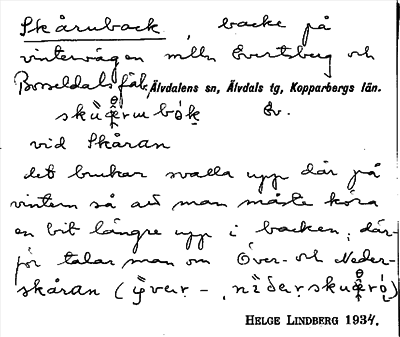 Skåruback, backe på
vintervägen mlln Evertsberg och
Bosseldalsfäb. Älvdalens sn, Älvdals tg, Kopparbergs län.
Ev.
vid Skåran
det brukar svalla upp där på
vintern så att man måste köra
en bit längre upp i backen; där-
för talar man om Över- och Neder-
skåran (
HELGE LINDBERG 1934.